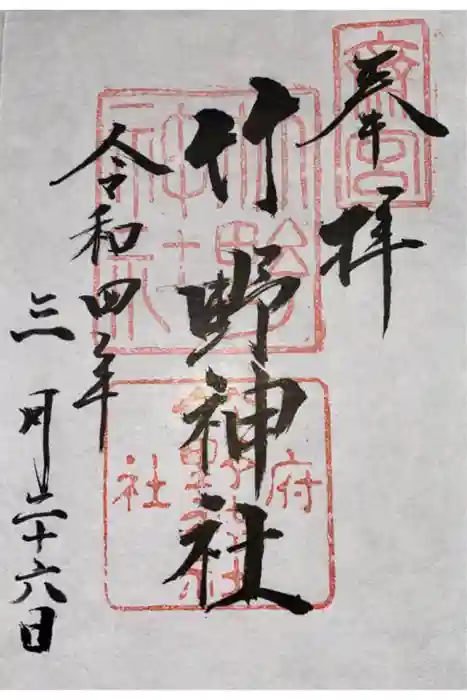 奉拝
斎宮
竹野神社
竹野神社
府社
竹野神社
令和四年
三月二十六日